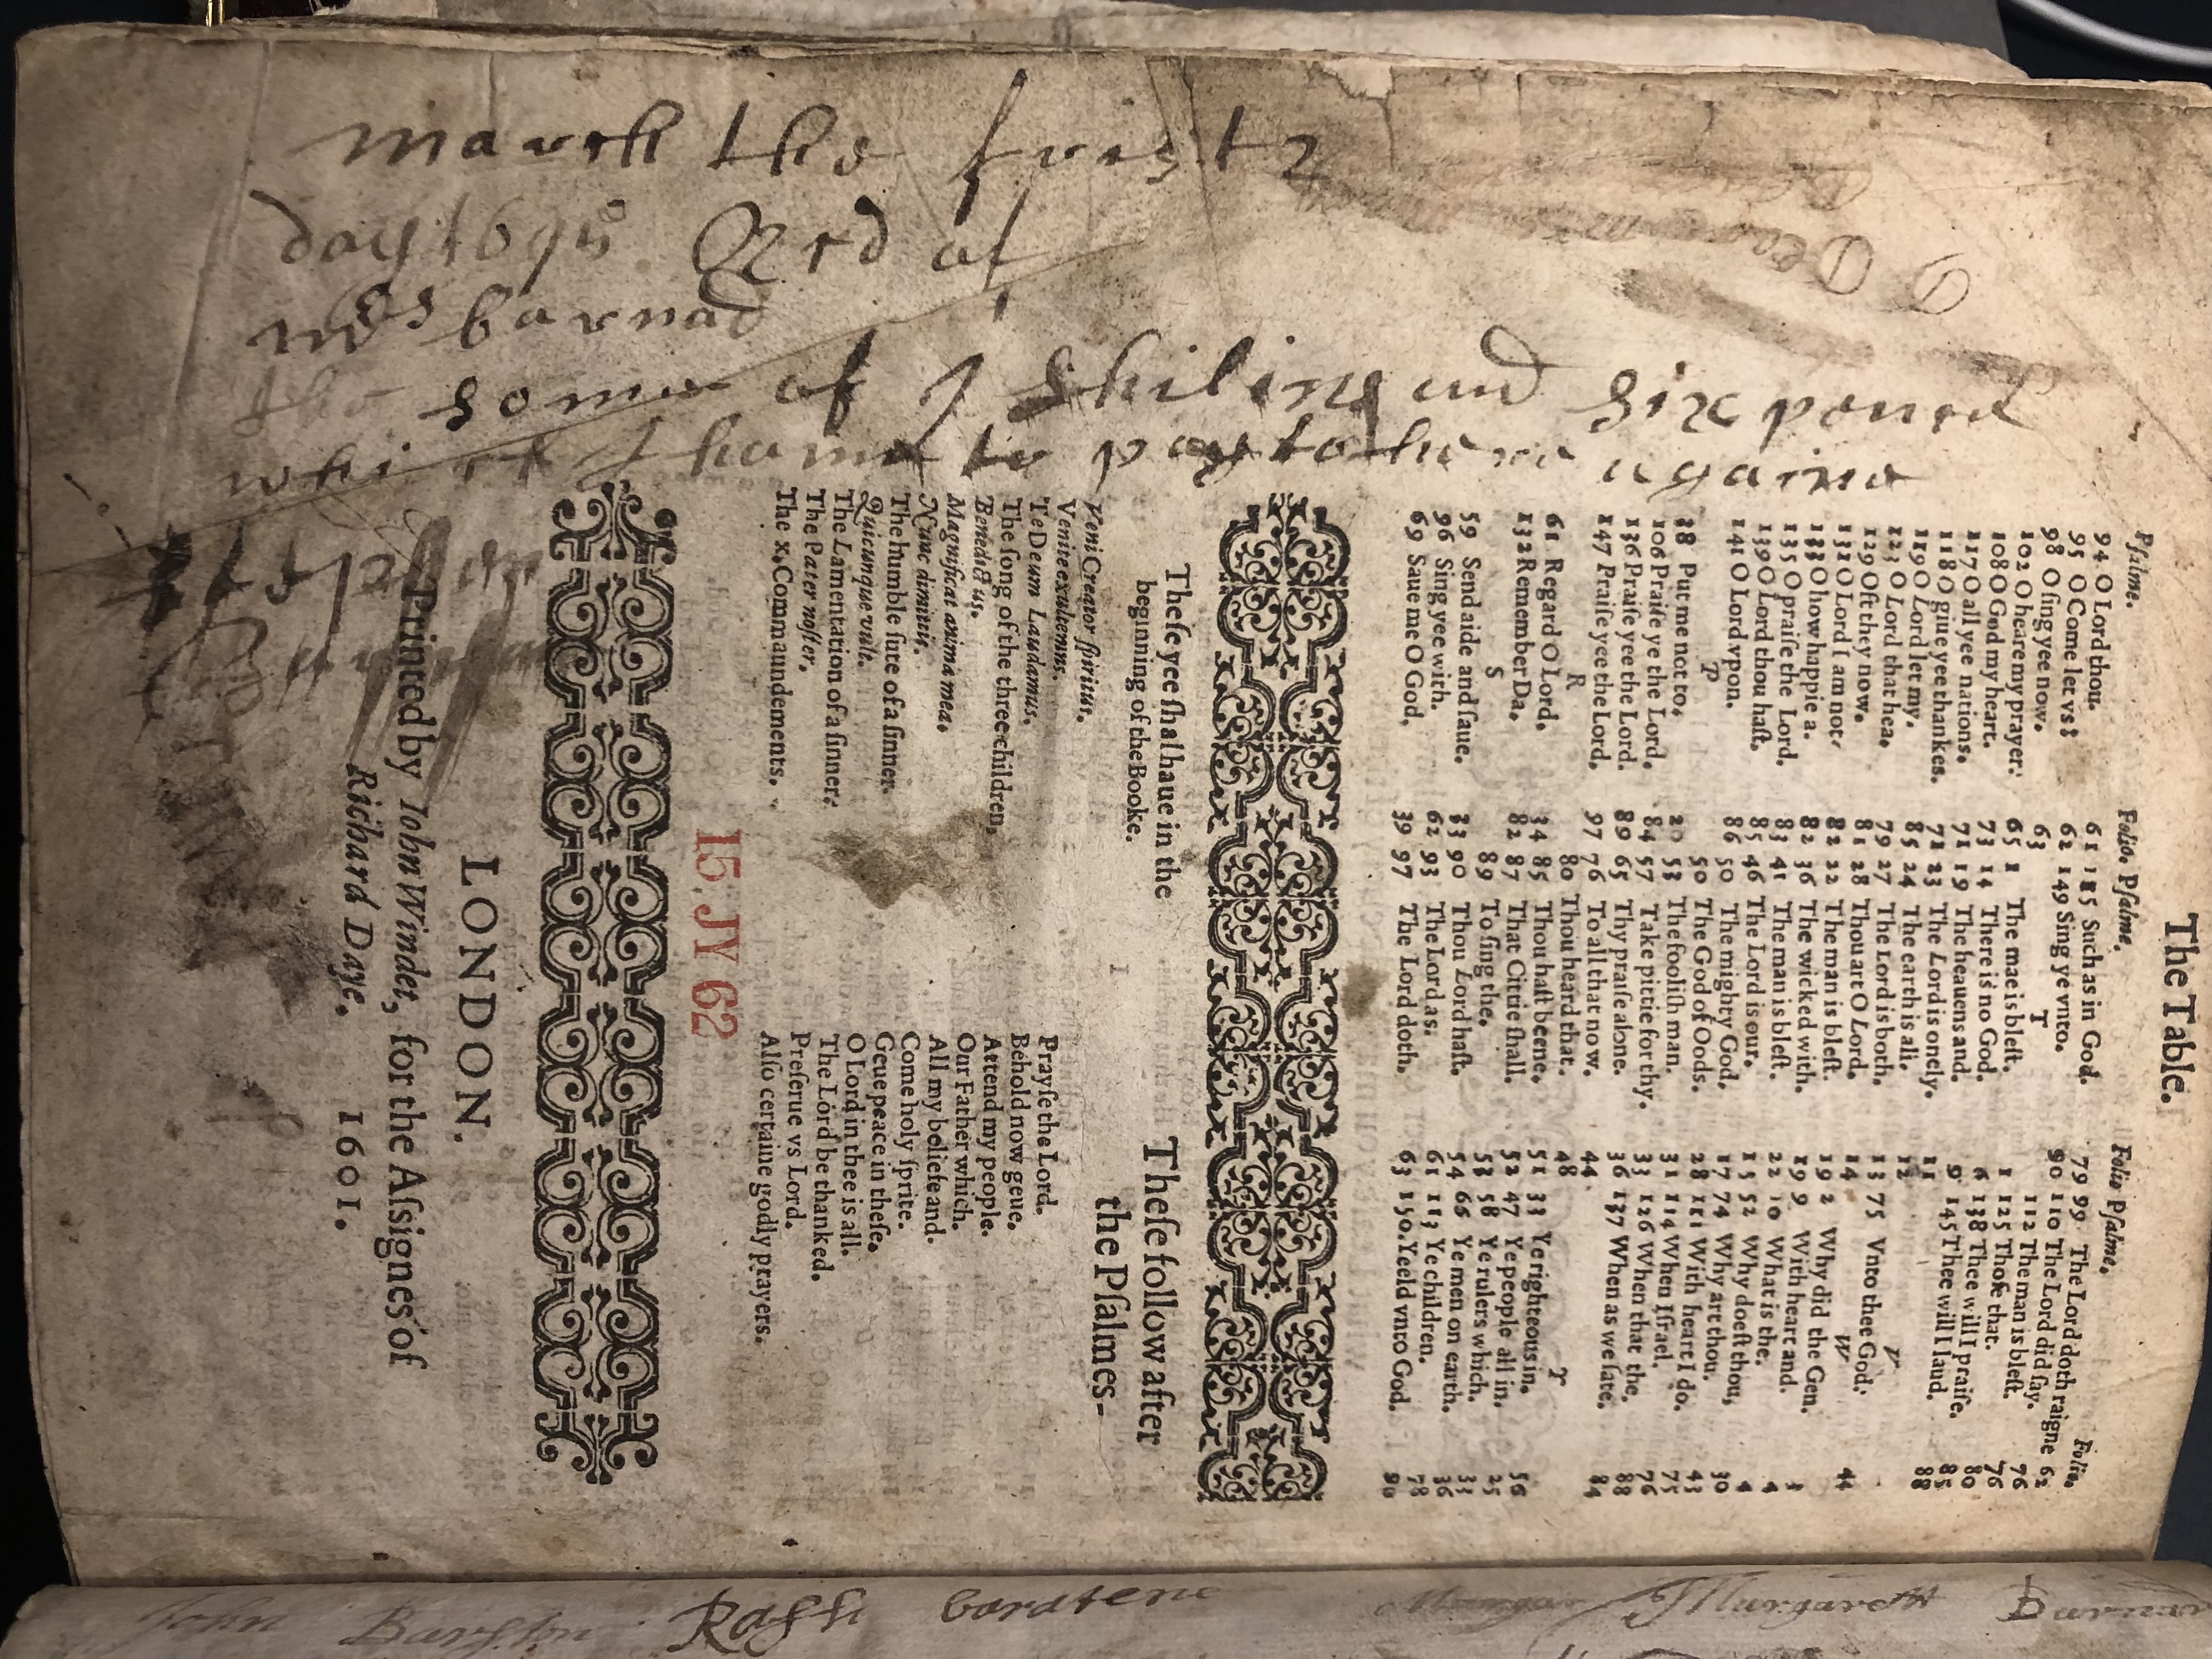 march the first
day 1695 Recd of
mrs barnad
the some of I shiling and six penc
which I haue to pay to her againe
The Table.
Psalme. Folio.
94 O Lord thou. 61
95 O Come let vs: 62
98 O sing yee now. 63
102 O heare my prayer: 65
108 O God my heart. 73
117 O all yee nations. 71
118 O giue yee thankes. 72
119 O Lord let my. 85
123 O Lord that hea. 79
129 Oft they now. 81
131 O Lord I am not. 82
133 O how happie a. 82
135 O praise the Lord. 83
139 O Lord thou hast. 85
141 O Lord vpon. 86
P
38 Put me not to. 20
106 Praise ye the Lord. 84
136 Praise yee the Lord. 89
147 Praise yee the Lord. 97
R
61 Regard O Lord. 34
132 Remember Da. 82
S
59 Send aide and saue. 33
96 Sing yee with. 62
69 Saue me O God. 39
Psalme. Folio
125 Such as in God. 79
149 Sing ye vnto. 90
T
1 The man is blest. 1
14 There is no God. 6
19 The heauens and. 9
23 The Lord is onely. 11
24 The earth is all. 12
27 The Lord is both. 13
28 Thou art O Lord. 14
32 The man is blest. 19
36 The wicked with. 19
41 The man is blest. 22
46 The Lord is our. 15
50 The mighty God. 17
50 The God of Gods. 28
53 The foolish man. 31
57 Take pittie for thy. 33
65 Thy praise alone. 36
76 To all that now. 44
80 Thou heard that. 48
85 Thou hast beene. 51
87 That Cittie shall. 52
89 To sing the. 53
90 Thou Lord hast. 54
93 The Lord as. 61
97 The Lord doth. 63
Psalme. Folio.
99 The Lord doth raigne 62
110 The Lord did say. 76
112 The man is blest. 76
125 Those that. 80
138 Thee will I praise. 85
145 Thee will I laud. 88
V
75 Vnto thee God. 44
W
2 Why did the Gen.
9 With heart and. 3
10 What is the. 4
52 Why doest thou, 4
74 Why art thou. 30
111 With heart I do. 43
114 When Israel. 75
126 When that the. 76
137 When as we sate. 88
84
Y
33 Ye righteous in. 56
47 Ye people all in. 25
58 Ye rulers which. 33
66 Ye men on earth. 36
113 Ye children. 78
150. Yeeld vnto God. 90
These yee shal haue in the
beginning of the Booke.
Veni Creator spiritus.
Venite exultemus.
Te Deum Laudamus.
The song of the three children,
Benedictus.
Magnificat anima mea.
Nunc dimittis.
The humble sute of a sinner.
Quicunque vult.
The Lamentation of a sinner.
The Pater noster.
The x. Commaundements.
These follow after
the Psalmes-
Prayse the Lord.
Behold now geue.
Attend my people.
Our Father which.
All my beliefe and.
Come holy sprite.
Geue peace in these.
O Lord in thee is all.
The Lord be thanked.
Preserue vs Lord.
Also certaine godly prayers.
15 JY 62
LONDON.
Printed by Iohn Windet, for the Assignes of
Richard Daye. 1601.
John Ralph
Margarett